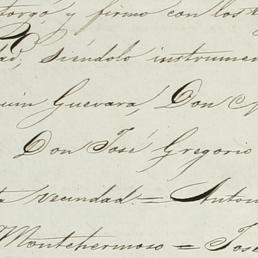 torgó y firmo con los
dad, siéndolo instrumen
uin Guevara, Don
Don José Gregorio
ta vecindad = Anton
Montehermoso = José